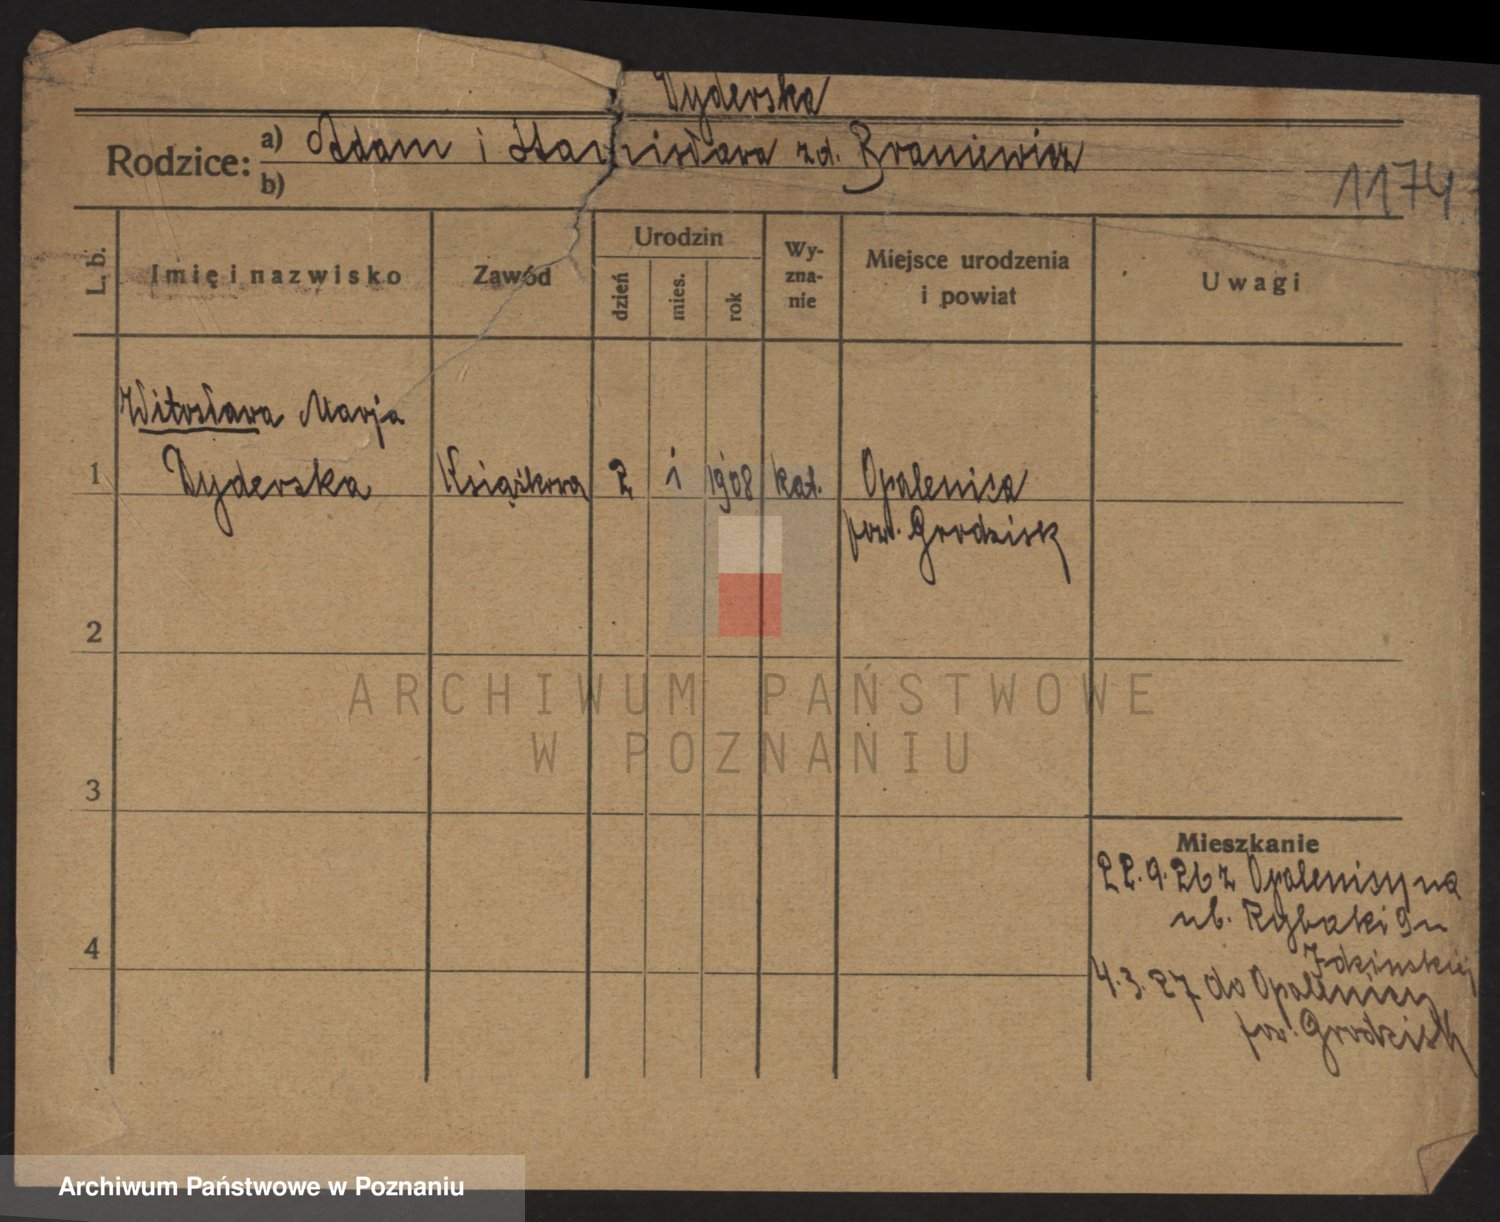 Dyderska
Rodzice: a) Adam i Stanisława zd. Braniewicz
b)
1174
L. b.
Imię i nazwisko
Zawód
Urodzin
dzień
mies.
rok
Wy-
zna-
nie
Miejsce urodzenia
i powiat
Uwagi
Witosława Marja
1 Dyderska Książkowa 2 1 1908 kat. Opalenica
pow. Grodzisk
2
ARCHIWUM PAŃSTWOWE
W POZNANIU
3
Mieszkanie
22.9.26 z Opalenicy na
ul. Rybaki 9 u
4
4.3.27 do Opalenicy
pow. Grodzisk
Archiwum Państwowe w Poznaniu